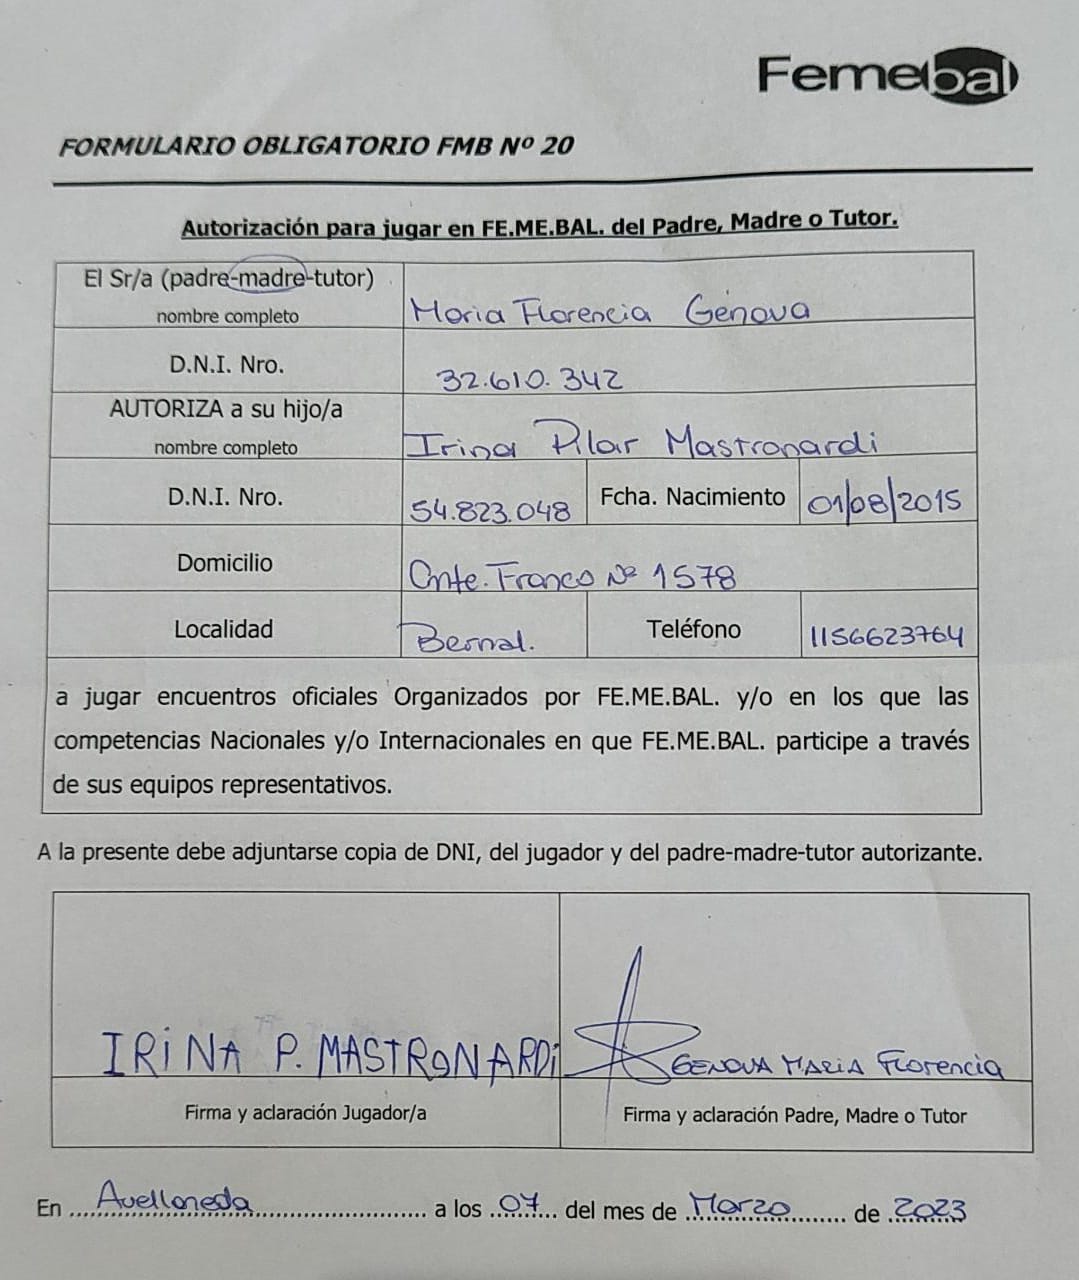 Femebal
FORMULARIO OBLIGATORIO FMB Nº 20
Autorización para jugar en FE.ME.BAL. del Padre, Madre o Tutor.
El Sr/a (padre-madre-tutor)
nombre completo
Maria Florencia Génova
D.N.I. Nro.
32.610.342
AUTORIZA a su hijo/a
nombre completo
Irina Pilar Mastronardi
D.N.I. Nro.
54.823.048
Fcha. Nacimiento
01/08/2015
Domicilio
Cnte. Franco Nº 1578
Localidad
Bernal.
Teléfono
1156623764
a jugar encuentros oficiales Organizados por FE.ME.BAL. y/o en los que las
competencias Nacionales y/o Internacionales en que FE.ME.BAL. participe a través
de sus equipos representativos.
A la presente debe adjuntarse copia de DNI, del jugador y del padre-madre-tutor autorizante.
IRINA P. MASTRONARDI
GENOVA MARIA Florencia
Firma y aclaración Jugador/a
Firma y aclaración Padre, Madre o Tutor
En Avellaneda a los 07 del mes de Marzo de 2023